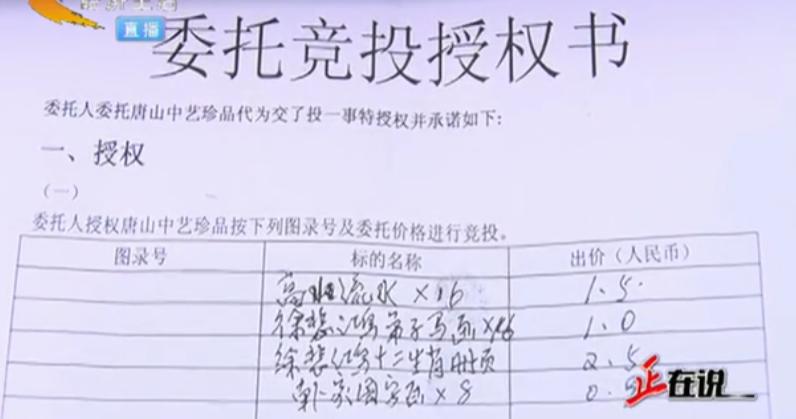 直播
委托竞投授权书
委托人委托唐山中艺珍品代为交了投一事特授权并承诺如下:
一、授权
(一)
委托人授权唐山中艺珍品按下列图录号及委托价格进行竞投。
图录号 标的名称 出价（人民币）
高山流水 ×16 1.5
徐悲鸿弟子马画 1.0
徐悲鸿十二生肖册页 2.5
国字画×8 0.
正在说